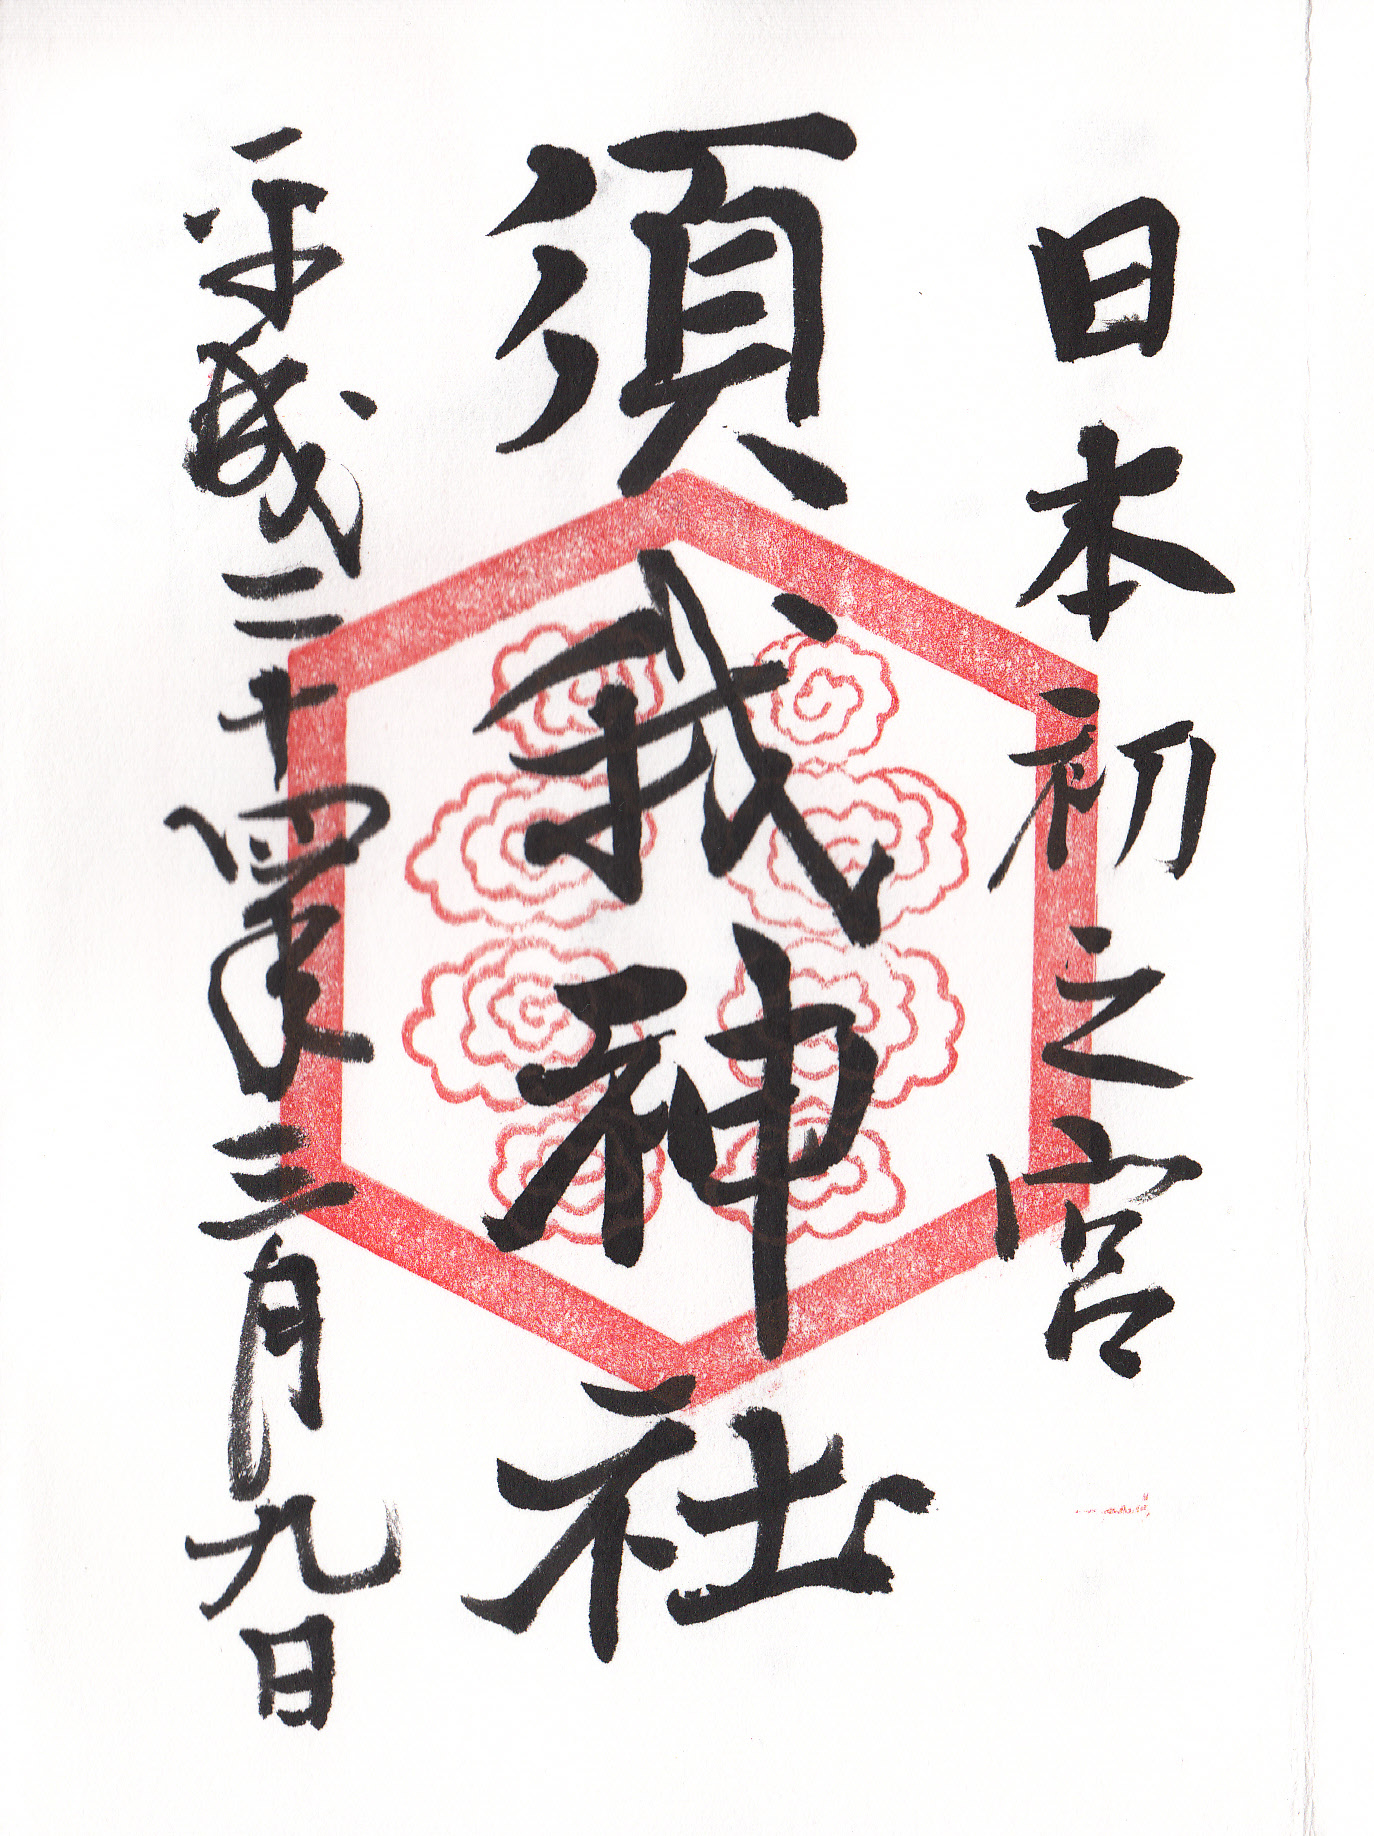 日本初之宮
須我神社
平成二十四年三月九日